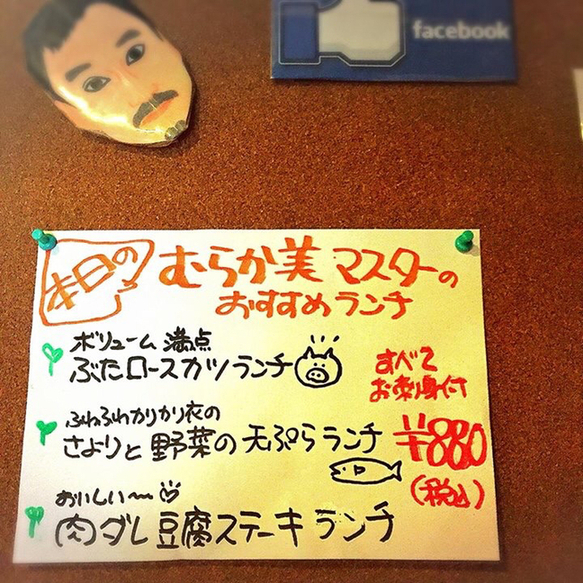 facebook
本日の
むらか美マスターの
おすすめランチ
ボリューム満点
ぶたロースカツランチ
すべて
お刺身付
ふわふわカリカリ衣の
さよりと野菜の天ぷらランチ
¥880
(税込)
おいしい〜♡
肉ダレ豆腐ステーキランチ